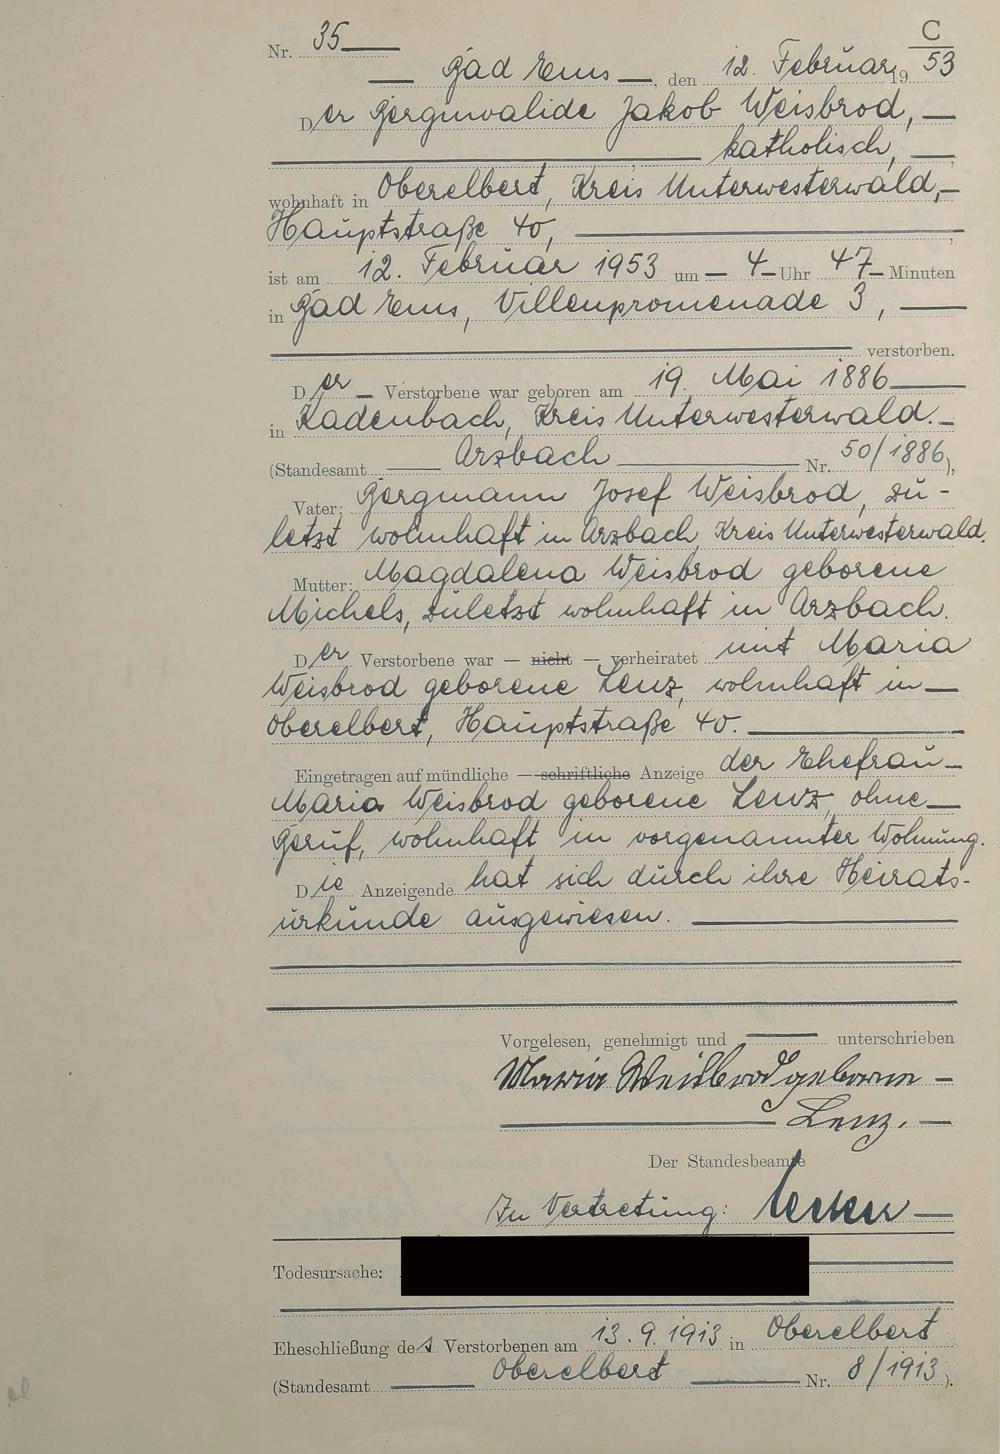 C
Nr. 35
Bad Ems, den 12. Februar 19 53
Der Berginvalide Jakob Weisbrod,
katholisch,
wohnhaft in Oberelbert, Kreis Unterwesterwald,
Hauptstraße 40,
ist am 12. Februar 1953 um 4 Uhr 47 Minuten
in Bad Ems, Villenpromenade 3,
verstorben.
Der Verstorbene war geboren am 19. Mai 1886
in Kadenbach, Kreis Unterwesterwald.
(Standesamt Arzbach Nr. 50/1886),
Vater: Bergmann Josef Weisbrod, zu-
letzt wohnhaft in Arzbach Kreis Unterwesterwald.
Mutter: Magdalena Weisbrod geborene
Michels, zuletzt wohnhaft in Arzbach.
Der Verstorbene war — nicht — verheiratet mit Maria
Weisbrod geborene Lenz, wohnhaft in
Oberelbert, Hauptstraße 40.
Eingetragen auf mündliche — schriftliche Anzeige der Ehefrau
Maria Weisbrod geborene Lenz, ohne
Beruf, wohnhaft in vorgenannter Wohnung.
Die Anzeigende hat sich durch ihre Heirats-
urkunde ausgewiesen.
Vorgelesen, genehmigt und unterschrieben
Maria Weisbrod geborene
Lenz.
Der Standesbeamte
In Vertretung:
Todesursache:
Eheschließung des Verstorbenen am 13.9.1913 in Oberelbert
(Standesamt Oberelbert Nr. 8/1913).